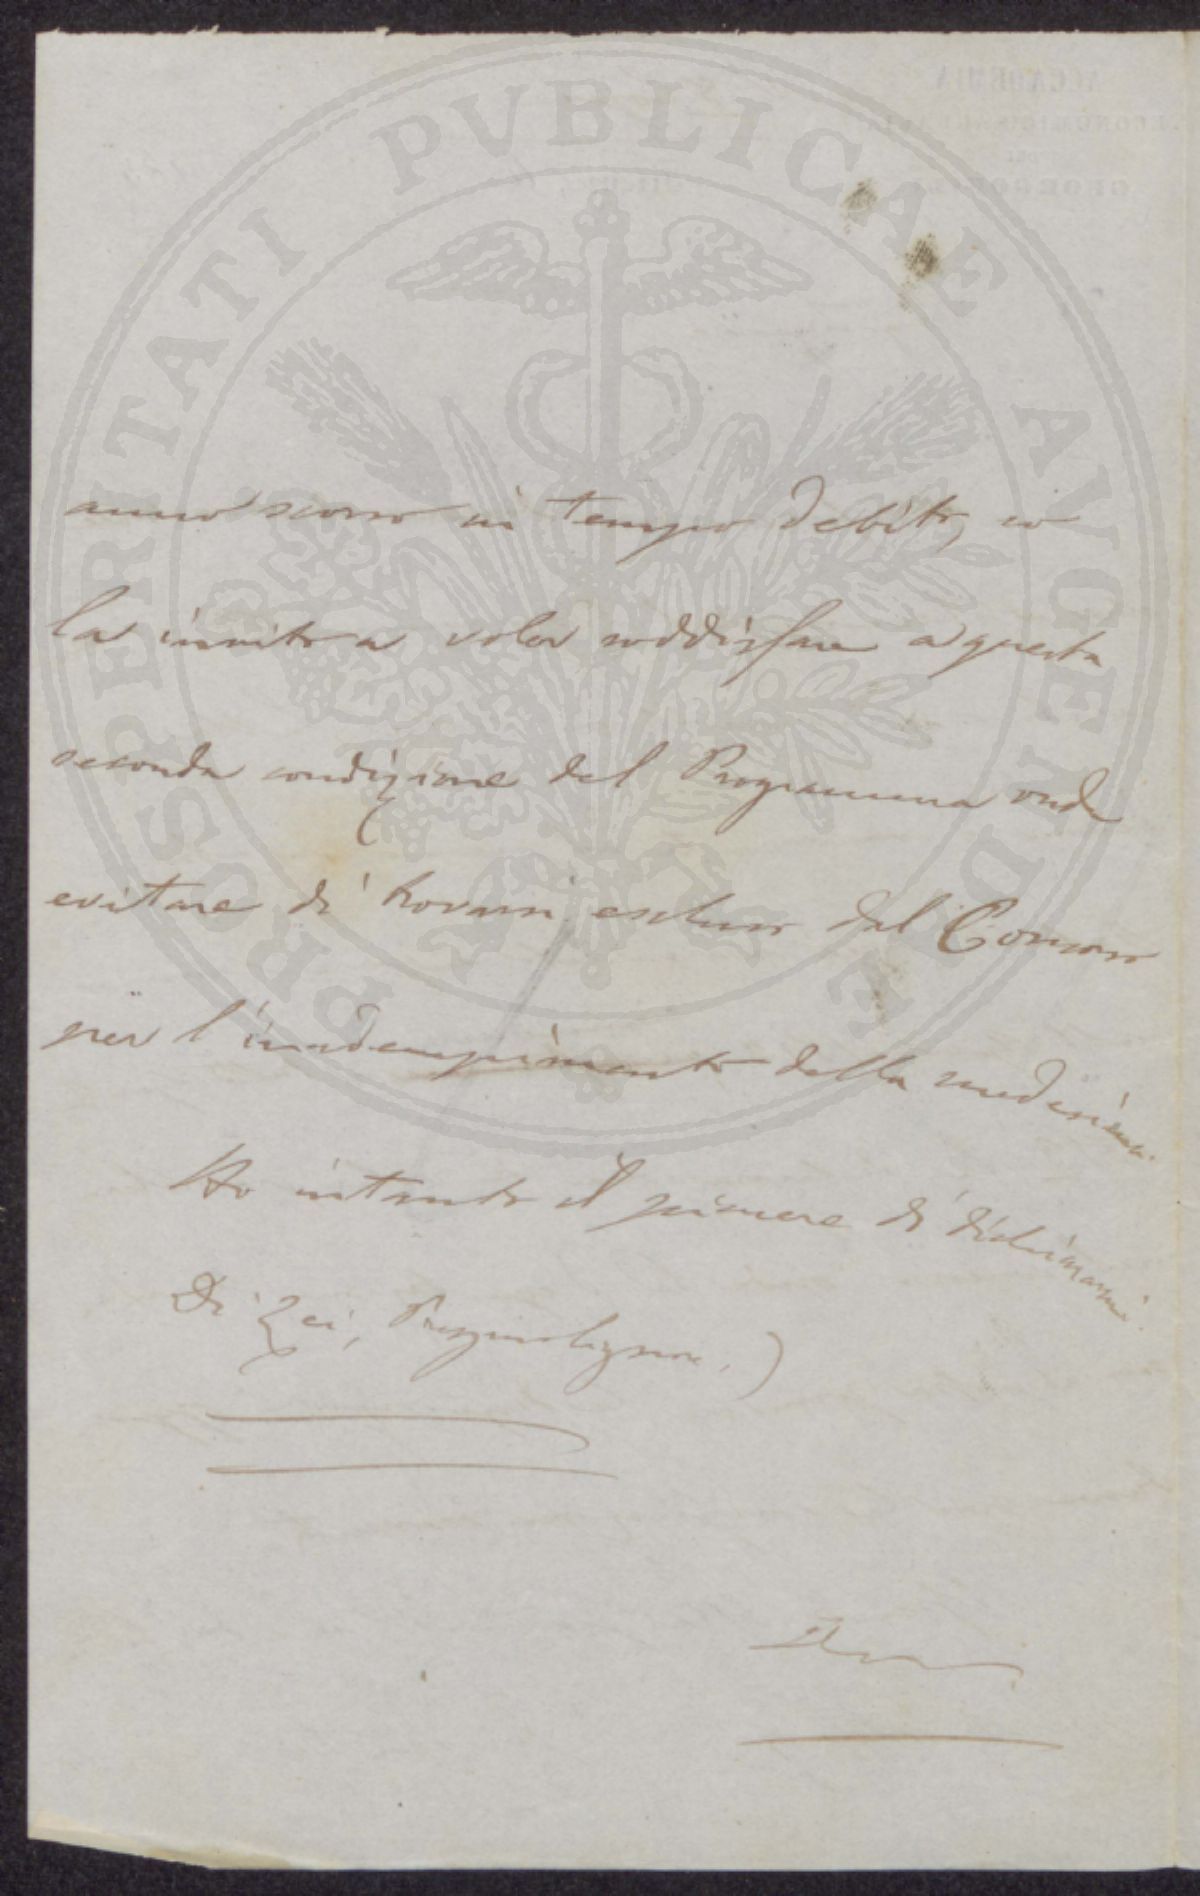 PROSPERITATI PVBLICAE AVGENDAE
ACCADEMIA
anno scorso in tempo debito, io
la invito a voler soddisfare a questa
seconda condizione del Programma onde
evitare di trovarsi escluso dal Concorso
per l'inadempimento della medesima.
Ho intanto il piacere di dichiararmi
Di Lei, Pregmo Signore,